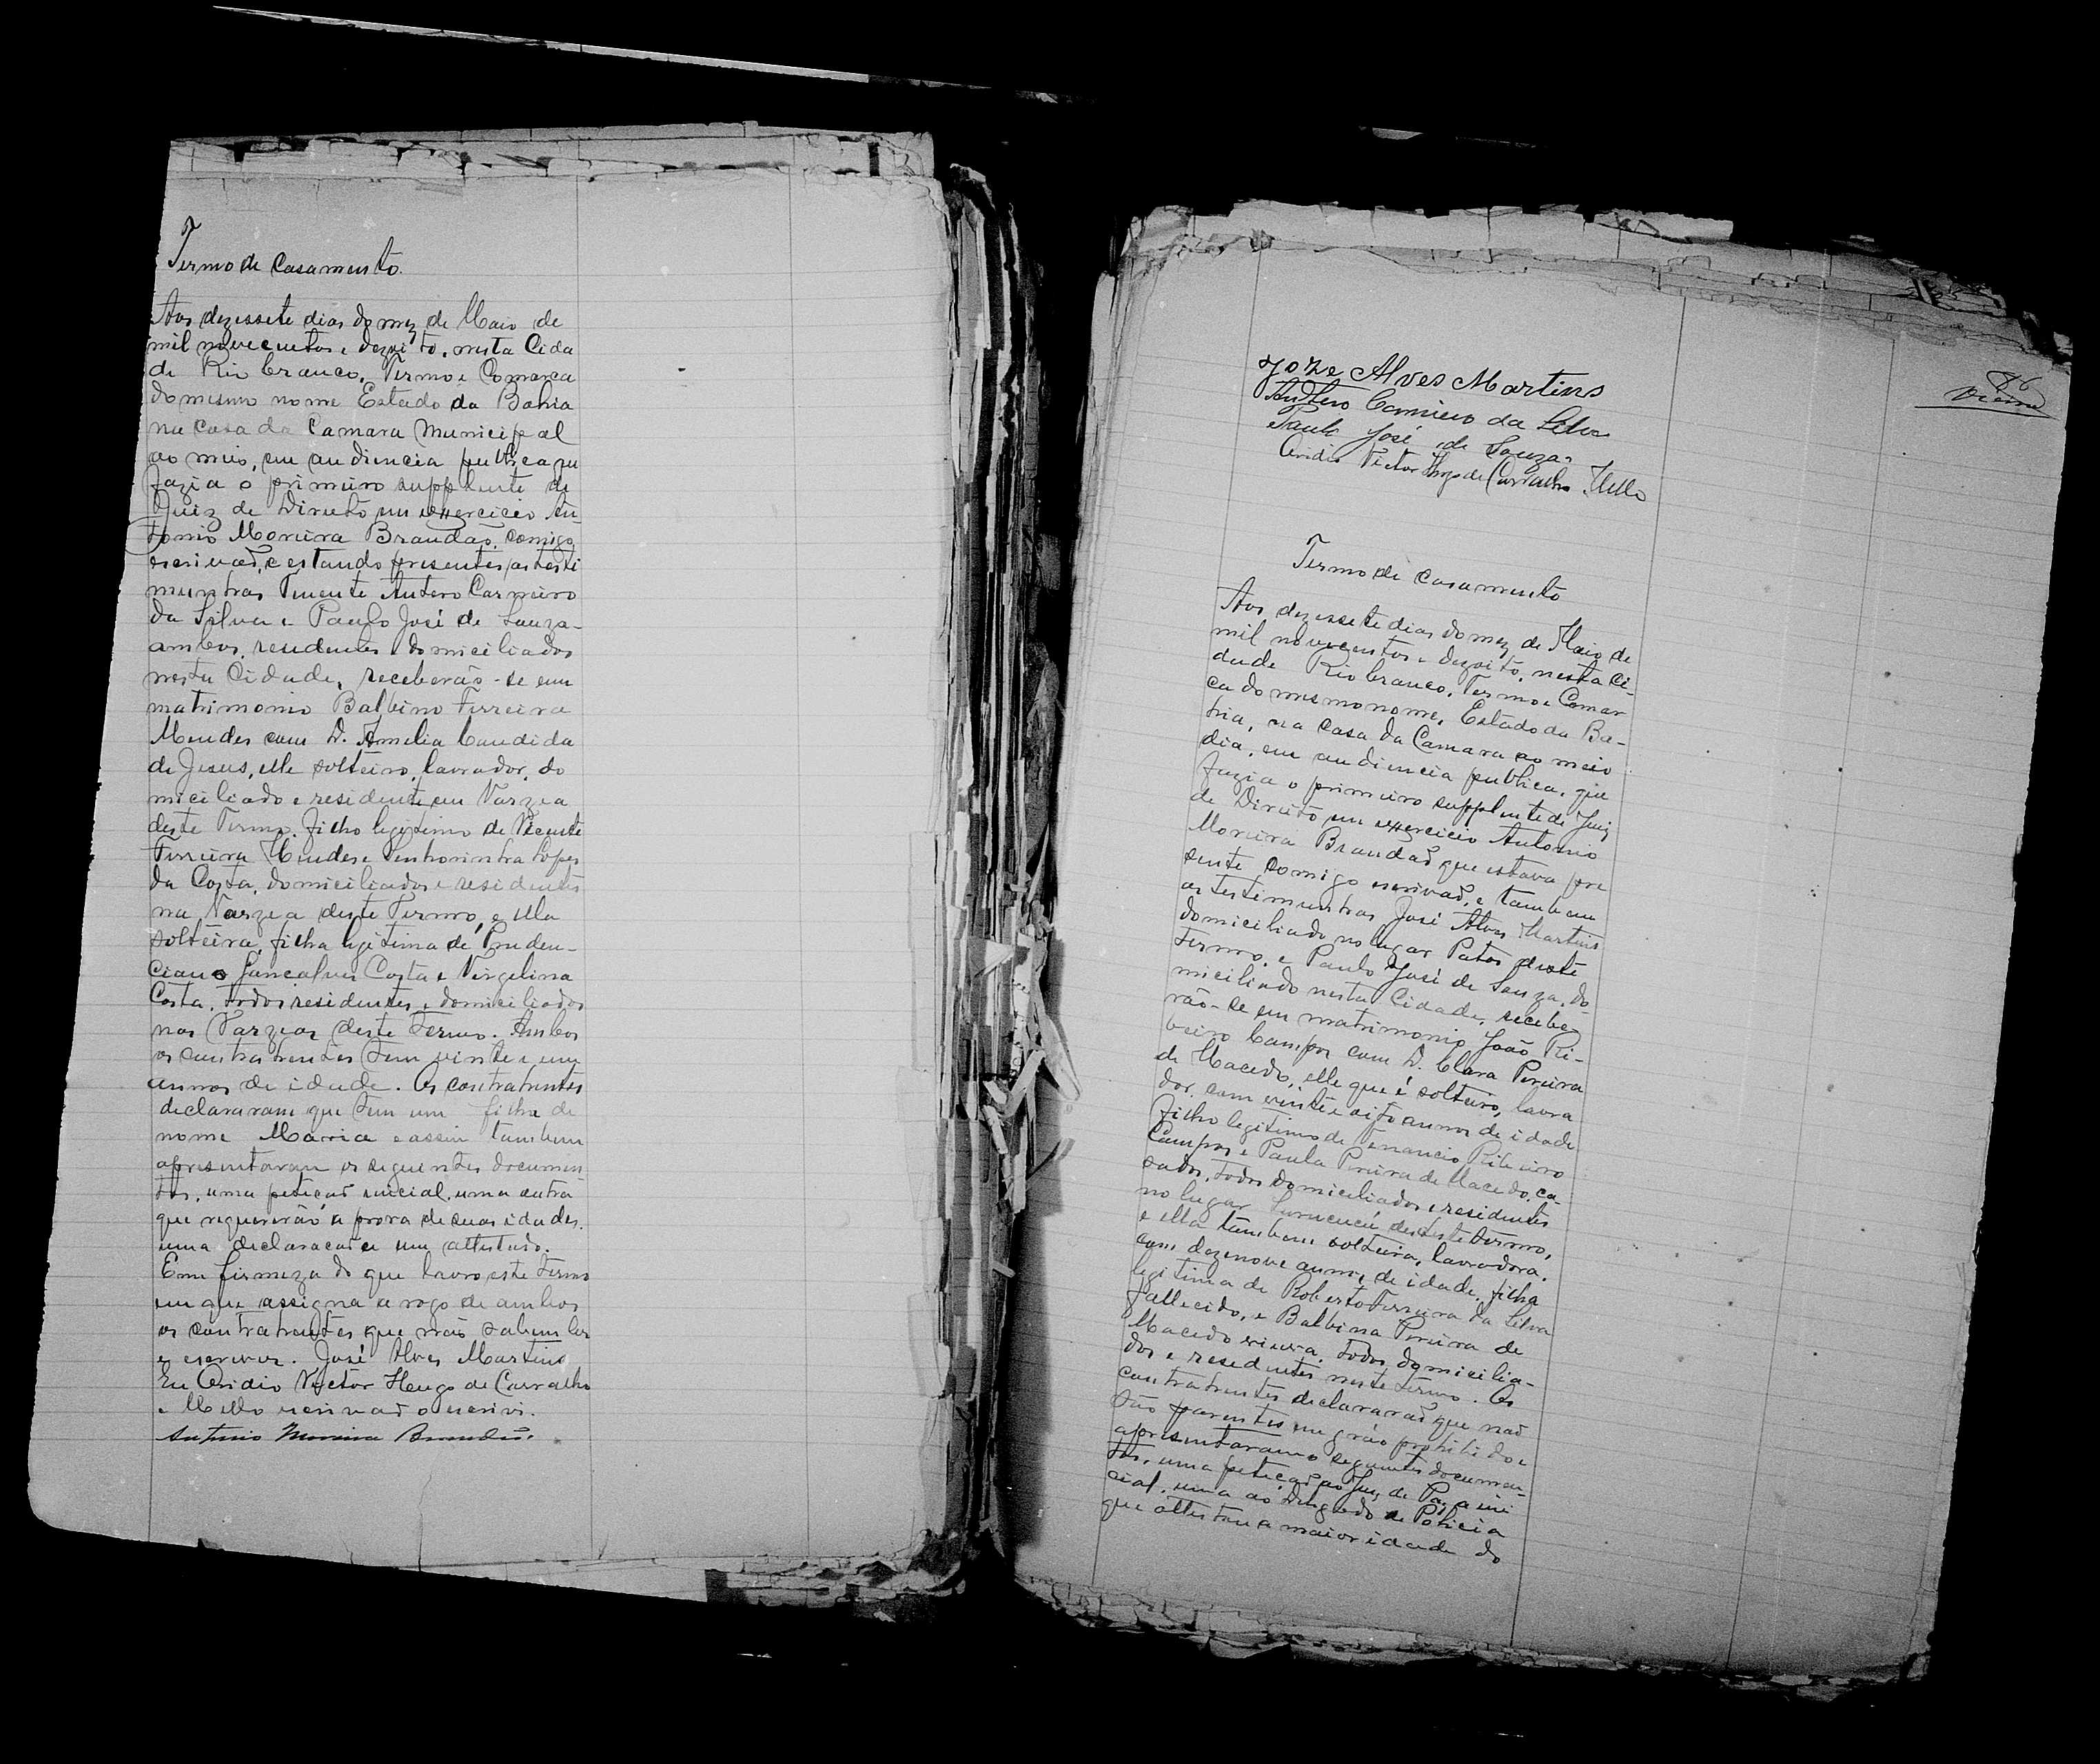 Termo de Casamento.
Aos dezessete dias do mez de Maio de
mil novecentos e dezoito, nesta Cida
de Rio branco, Termo e Comarca
do mesmo nome Estado da Bahia
na casa da Camara Municipal
ao meio, em audiencia publica que
fazia o primeiro supplente de
Juiz de Direito em exercicio An-
tonio Moreira Brandão, comigo
escrivão, e estando presentes as testi
munhas Tenente Antero Carneiro
da Silva e Paulo José de Souza-
ambos residentes e domiciliados
nesta Cidade, receberão-se em
matrimonio Balbino Ferreira
Mendes com D. Amelia Candida
de Jesus, elle solteiro, lavrador, do
miciliado e residente em Varzea
deste Termo, filho legitimo de Vicente
Ferreira Mendes e Senhorinha Lopes
da Costa, domiciliados e residentes
na Varzea deste Termo, e ella
solteira, filha legitima de Pruden-
ciano Gonçalves Costa e Virgelina
Costa, todos residentes e domiciliados
nas Varzeas deste Termo. Ambos
os contrahentes tem vinte e um
annos de idade. Os contrahentes
declararam que tem um filha de
nome Maria e assim tambem
apresentaram os seguintes documen-
tos, uma petição inicial, uma outra
que requererão a prova de suas idades,
uma declaração e um attestado.
Em firmeza do que lavro este termo
em que assigna a rogo de ambos
os contrahentes que não sabem ler
e escrever. José Alves Martins
Eu Ovidio Victor Hugo de Carvalho
e Mello escrivão o escrivi.
Antonio Moreira Brandão.
86
Joze Alves Martins
Antero Carneiro da Silva
Paulo José de Souza
Ovidio Victor Hugo de Carvalho Mello
Termo de casamento
Aos dezessete dias do mez de Maio de
mil novecentos e dezoito, nesta Ci-
dade Rio branco, Termo e Comar
ca do mesmo nome, Estado da Ba-
hia, na casa da Camara ao meio
dia, em audiencia publica, que
fazia o primeiro supplente de Juiz
de Direito em exercicio Antonio
Moreira Brandão que estava pre
sente comigo escrivão, e tambem
as testimunhas José Alves Martins
domiciliado no lugar Patos deste
termo, e Paulo José de Souza, do-
miciliado nesta Cidade, recebe
rão-se em matrimonio João Ri-
beiro Campos com D. Clara Pereira
de Macedo, elle que é solteiro, lavra
dor, com vinte e oito annos de idade
filho legitimo de Venancio Ribeiro
Campos e Paula Pereira de Macedo, ca-
sados, todos domiciliados e residentes
no lugar Surucucú deste termo,
e ella tambem solteira, lavradora,
com dezenove annos de idade, filha
legitima de Roberto Ferreira da Silva
fallecido, e Balbina Pereira de
Macedo viuva, todos domicilia-
dos e residentes neste termo. Os
contrahentes declararão que não
são parentes em gráo prohibido e
apresentaram o seguintes documen-
tos, uma petição ao Juiz de Paz a ini
cial, uma ao Delegado de Policia
que attestou a maior idade do